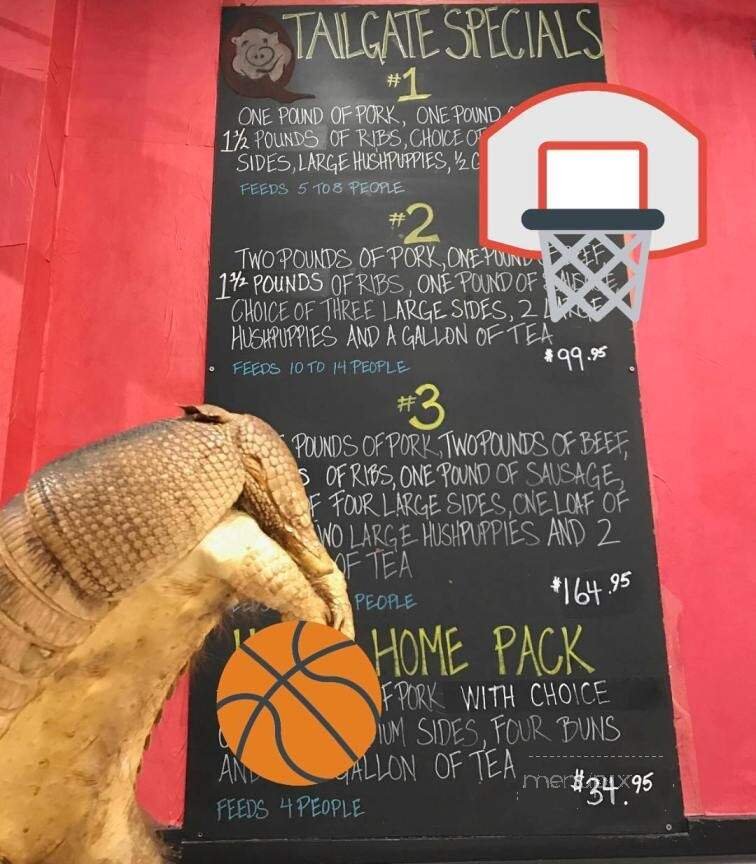 TAILGATE SPECIALS
#1
ONE POUND OF PORK, ONE POUND
1½ POUNDS OF RIBS, CHOICE OF
SIDES, LARGE HUSHPUPPIES, ½
FEEDS 5 TO 8 PEOPLE
#2
TWO POUNDS OF PORK, ONE POUND OF BEEF,
1½ POUNDS OF RIBS, ONE POUND OF SAUSAGE
CHOICE OF THREE LARGE SIDES, 2 LARGE
HUSHPUPPIES AND A GALLON OF TEA
$99.95
FEEDS 10 TO 14 PEOPLE
#3
POUNDS OF PORK, TWO POUNDS OF BEEF,
OF RIBS, ONE POUND OF SAUSAGE,
FOUR LARGE SIDES, ONE LOAF OF
TWO LARGE HUSHPUPPIES AND 2
OF TEA
$164.95
PEOPLE
HOME PACK
OF PORK WITH CHOICE
SIDES, FOUR BUNS
AND GALLON OF TEA
menupix
$34.95
FEEDS 4 PEOPLE